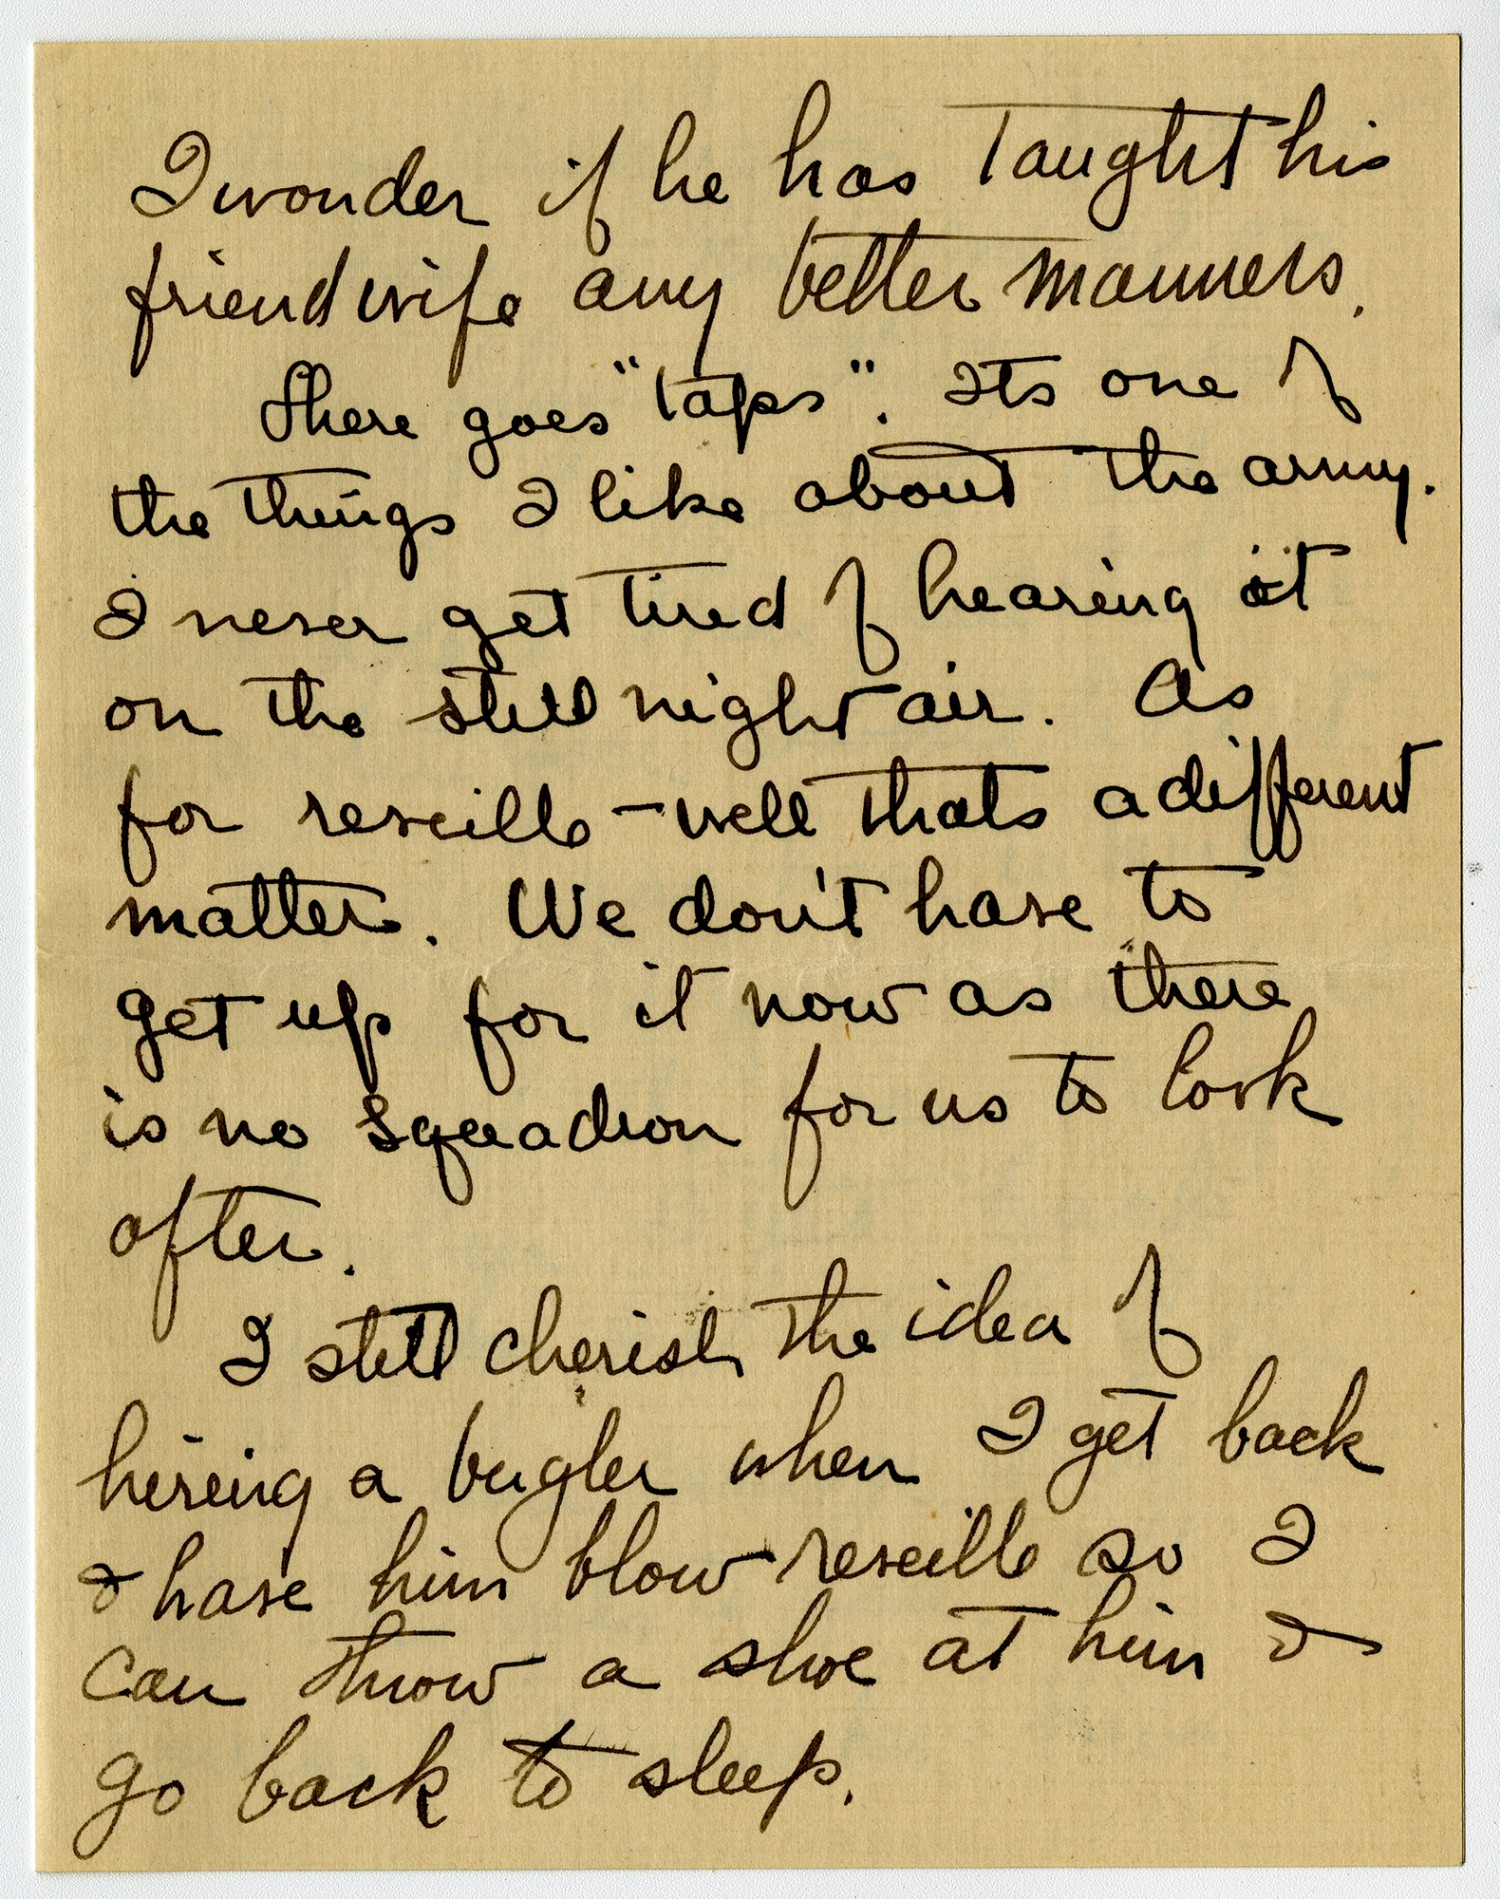 I wonder if he has taught his
friend wife any better manners.
There goes "taps". Its one of
the things I like about the army.
I never get tired of hearing it
on the still night air. As
for reveille - well thats a different
matter. We don't have to
get up for it now as there
is no squadron for us to look
after.
I still cherish the idea of
hireing a bugler when I get back
& have him blow reveille so I
can throw a shoe at him &
go back to sleep.